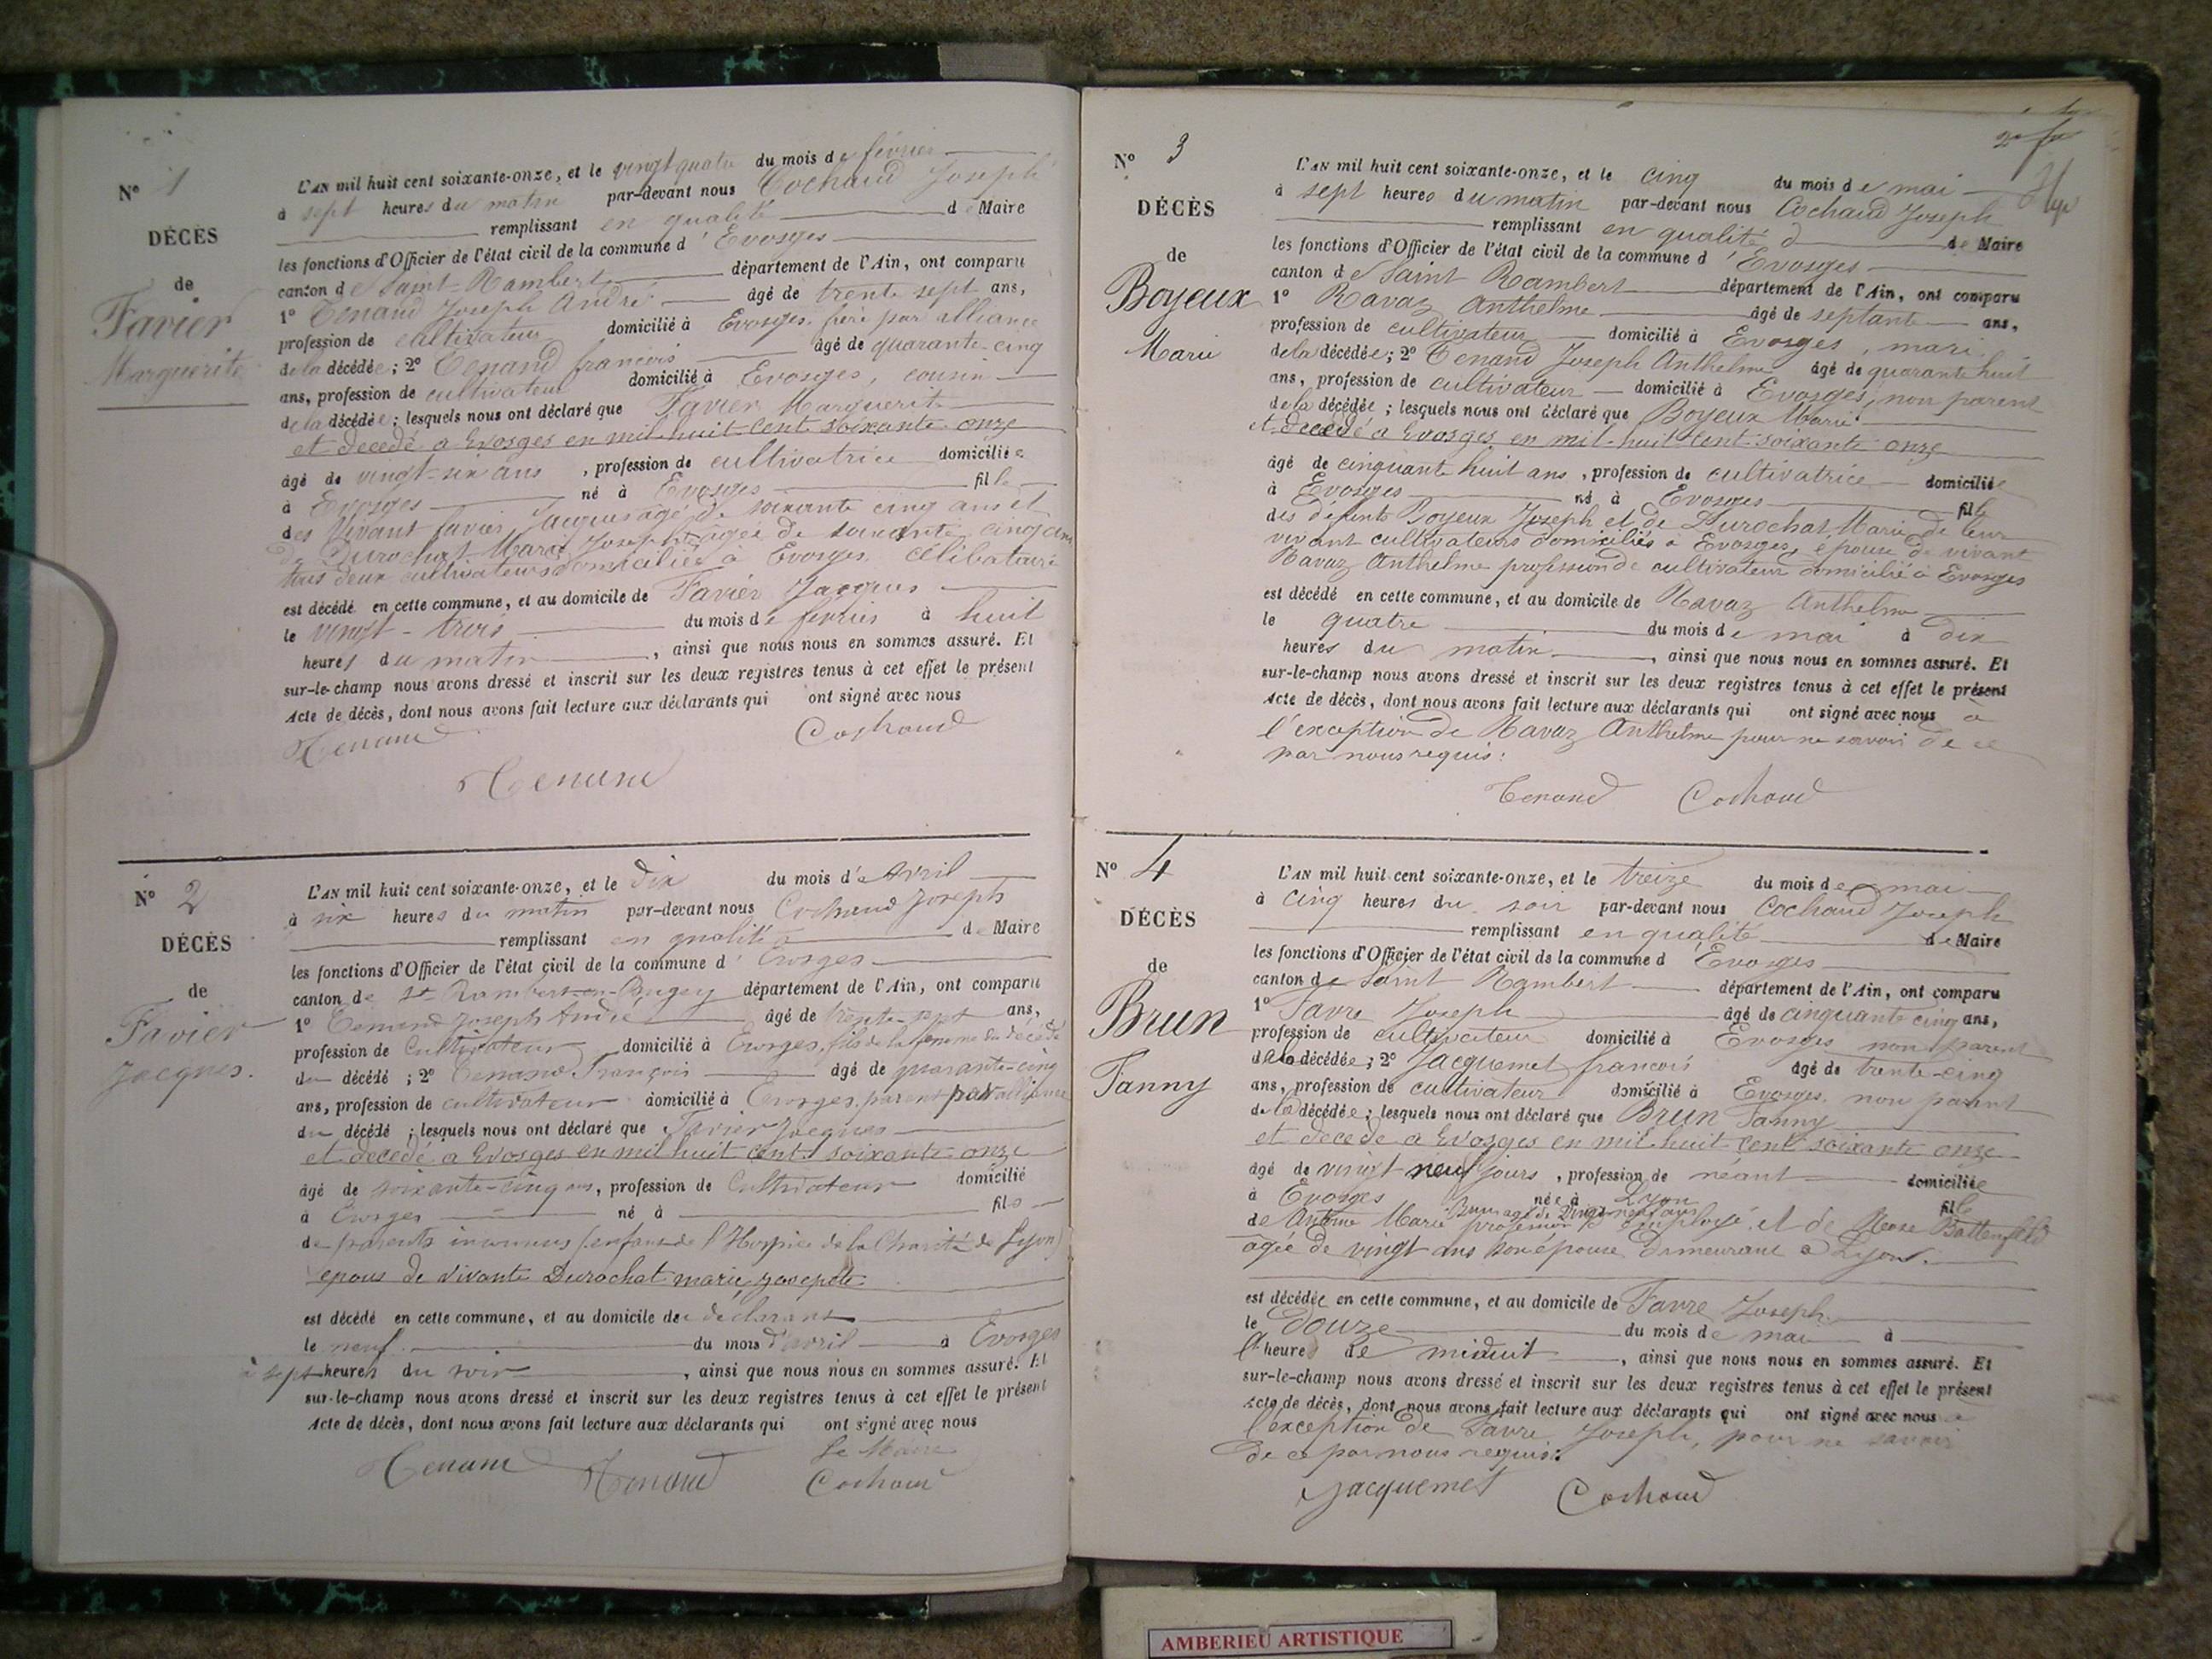 N° 1
DÉCÈS
de
Favier
Marguerite
L'AN mil huit cent soixante-onze, et le vingt quatre du mois de février
à sept heures du matin par-devant nous Cochaud Joseph
remplissant en qualité de Maire
les fonctions d'Officier de l'état civil de la commune d'Evosges
canton de Saint-Rambert département de l'Ain, ont comparu
1° Tenand Joseph André âgé de trente sept ans,
profession de cultivateur domicilié à Evosges, frère par alliance
de la décédée ; 2° Tenand françois âgé de quarante-cinq
ans, profession de cultivateur domicilié à Evosges, cousin
de la décédée ; lesquels nous ont déclaré que Favier Marguerite
et decedé a Evosges en mil-huit cent soixante-onze
âgé de vingt-six ans, profession de cultivatrice domiciliée
à Evosges né à Evosges fille
des Vivant favier Jacques agé de soixante cinq ans et
de Durochat Marie Josephte agée de soixante cinq ans
tous deux cultivateurs domiciliés à Evosges. Célibataire
est décédé en cette commune, et au domicile de Favier Jacques
le vingt-trois du mois de fevrier à huit
heures du matin, ainsi que nous nous en sommes assuré. Et
sur-le-champ nous avons dressé et inscrit sur les deux registres tenus à cet effet le présent
Acte de décès, dont nous avons fait lecture aux déclarants qui ont signé avec nous
Tenand Cochaud
Tenand
N° 2
DÉCÈS
de
Favier
Jacques.
L'AN mil huit cent soixante-onze, et le dix du mois d'Avril
à six heures du matin par-devant nous Cochaud Joseph
remplissant en qualité de Maire
les fonctions d'Officier de l'état civil de la commune d'Evosges
canton de St Rambert-en-Bugey département de l'Ain, ont comparu
1° Tenand Joseph André âgé de trente-sept ans,
profession de Cultivateur domicilié à Evosges, fils de la femme du décédé
du décédé ; 2° Tenand François âgé de quarante-cinq
ans, profession de cultivateur domicilié à Evosges, parent par alliance
du décédé ; lesquels nous ont déclaré que Favier Jacques
et decedé a Evosges en mil huit cent soixante-onze
âgé de soixante-cinq ans, profession de Cultivateur domicilié
à Evosges né à fils
de parents inconnus (enfant de l'Hospice de la Charité de Lyon)
epous de vivante Durochat marie, josephte
est décédé en cette commune, et au domicile de déclarant
le neuf du mois d'avril à Evosges
à sept heures du soir, ainsi que nous nous en sommes assuré. Et
sur-le-champ nous avons dressé et inscrit sur les deux registres tenus à cet effet le présent
Acte de décès, dont nous avons fait lecture aux déclarants qui ont signé avec nous
Le Maire
Tenand Tenand Cochaud
N° 3
DÉCÈS
de
Boyeux
Marie
L'AN mil huit cent soixante-onze, et le cinq du mois de mai
à sept heures du matin par-devant nous Cochaud Joseph
remplissant en qualité de Maire
les fonctions d'Officier de l'état civil de la commune d'Evosges
canton de Saint Rambert département de l'Ain, ont comparu
1° Ravaz Anthelme âgé de septante ans,
profession de cultivateur domicilié à Evosges, mari
de la décédée ; 2° Tenand Joseph Anthelme âgé de quarante huit
ans, profession de cultivateur domicilié à Evosges, non parent
de la décédée ; lesquels nous ont déclaré que Boyeux Marie
et decedé a Evosges en mil-huit-cent-soixante onze
âgé de cinquante huit ans, profession de cultivatrice domiciliée
à Evosges né à Evosges fille
des défunts Boyeux Joseph et de Durochat Marie, de leur
vivant cultivateurs domiciliés à Evosges, epouse de vivant
Ravaz Anthelme profession de cultivateur domicilié à Evosges
est décédé en cette commune, et au domicile de Ravaz Anthelme
le quatre du mois de mai à dix
heures du matin, ainsi que nous nous en sommes assuré. Et
sur-le-champ nous avons dressé et inscrit sur les deux registres tenus à cet effet le présent
Acte de décès, dont nous avons fait lecture aux déclarants qui ont signé avec nous à
l'exception de Ravaz Anthelme pour ne savoir de ce
par nous requis :
Tenand Cochaud
N° 4
DÉCÈS
de
Brun
Fanny
L'AN mil huit cent soixante-onze, et le treize du mois de mai
à cinq heures du soir par-devant nous Cochaud Joseph
remplissant en qualité de Maire
les fonctions d'Officier de l'état civil de la commune d'Evosges
canton de Saint Rambert département de l'Ain, ont comparu
1° Favre Joseph âgé de cinquante cinq ans,
profession de cultivateur domicilié à Evosges non parent
de la décédée ; 2° Jacquemet françois âgé de trente-cinq
ans, profession de cultivateur domicilié à Evosges, non parent
de la décédée ; lesquels nous ont déclaré que Brun Fanny
et decede a Evosges en mil-huit-cent soixante onze
âgé de vingt neuf jours, profession de néant domiciliée
à Evosges née à Lyon fille
Brun agé de vingt neuf ans
de Antoine Marie profession d'employé, et de Battenfeld
agée de vingt ans son épouse Demeurant a Lyon.
est décédée en cette commune, et au domicile de Favre Joseph
le Douze du mois de mai à
l'heure de minuit, ainsi que nous nous en sommes assuré. Et
sur-le-champ nous avons dressé et inscrit sur les deux registres tenus à cet effet le présent
Acte de décès, dont nous avons fait lecture aux déclarants qui ont signé avec nous à
l'exception de Favre Joseph, pour ne savoir
de ce par nous requis.
Jacquemet Cochaud
AMBERIEU ARTISTIQUE